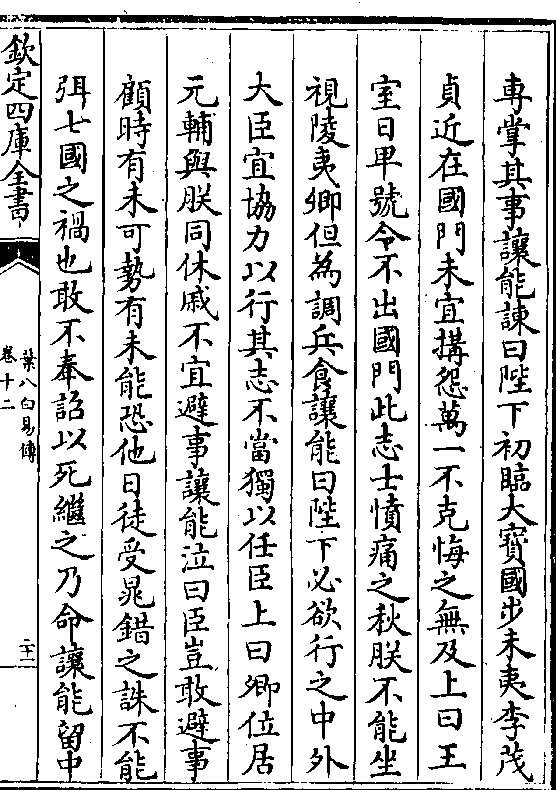 專掌其事讓能諫曰陛下初臨大寶國步未夷李茂
貞近在國門未宜搆怨萬一不克悔之無及上曰王
室日卑號令不出國門此志士憤痛之秋朕不能坐
視陵夷卿但為調兵食讓能曰陛下必欲行之中外
大臣宜協力以行其志不當獨以任臣上曰卿位居
元輔與朕同休戚不宜避事讓能泣曰臣豈敢避事
顧時有未可勢有未能恐他日徒受晁錯之誅不能
弭七國之禍也敢不奉詔以死繼之乃命讓能留中
欽定四庫全書
葉八白易傳
卷十二
二十二